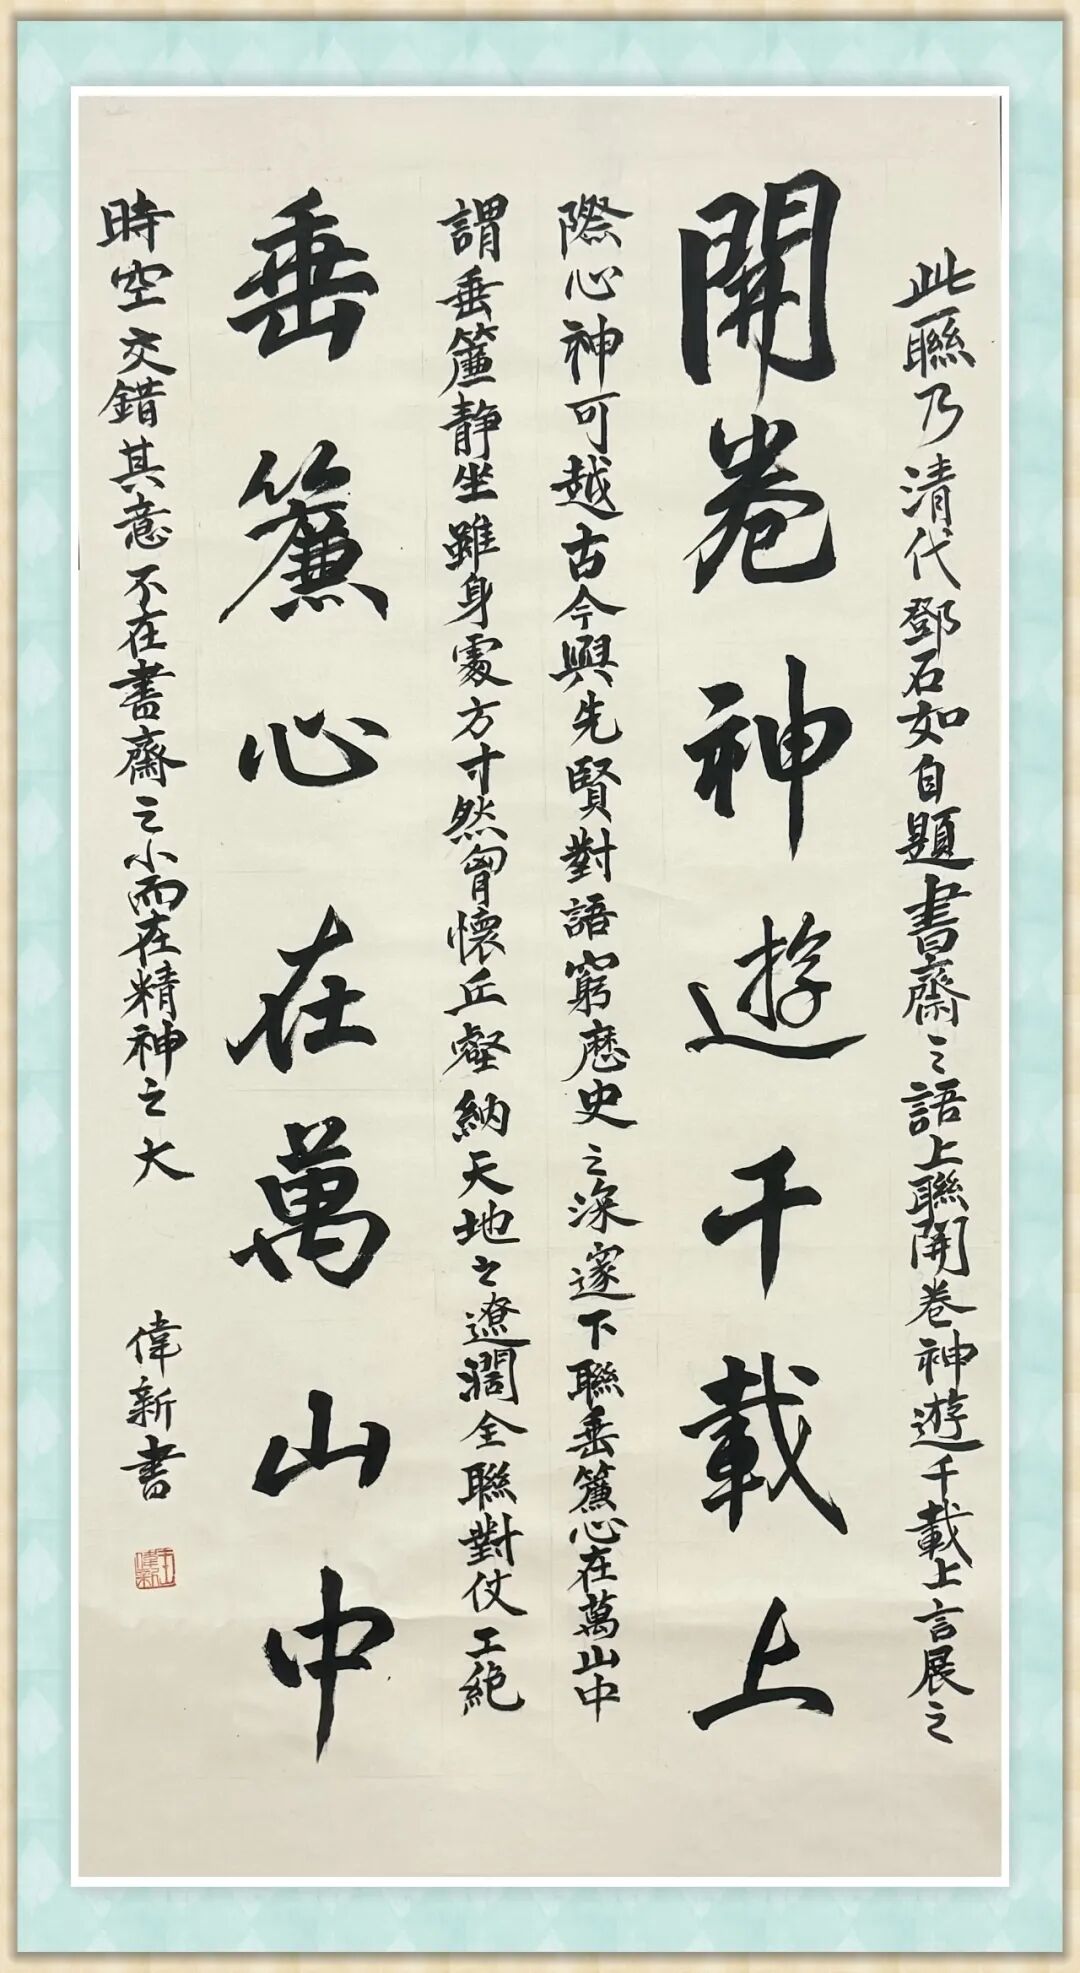 此聯乃清代鄧石如自題書齋之語上聯開卷神遊千載上言展之
開卷神遊千載上
際心神可越古今與先賢對語窮歷史之深邃下聯垂簾心在萬山中
謂垂簾靜坐雖身處方寸然胷懷丘壑納天地之遼濶全聯對仗工絶
垂簾心在萬山中
時空交錯其意不在書齋之小而在精神之大
偉新書